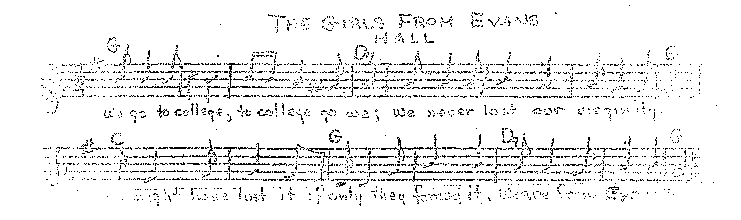 THE GIRLS FROM EVANS
HALL
G D7 G
We go to college, to college go we; we never lost our virginity
C G D7 G
might have lost it if only they                 from